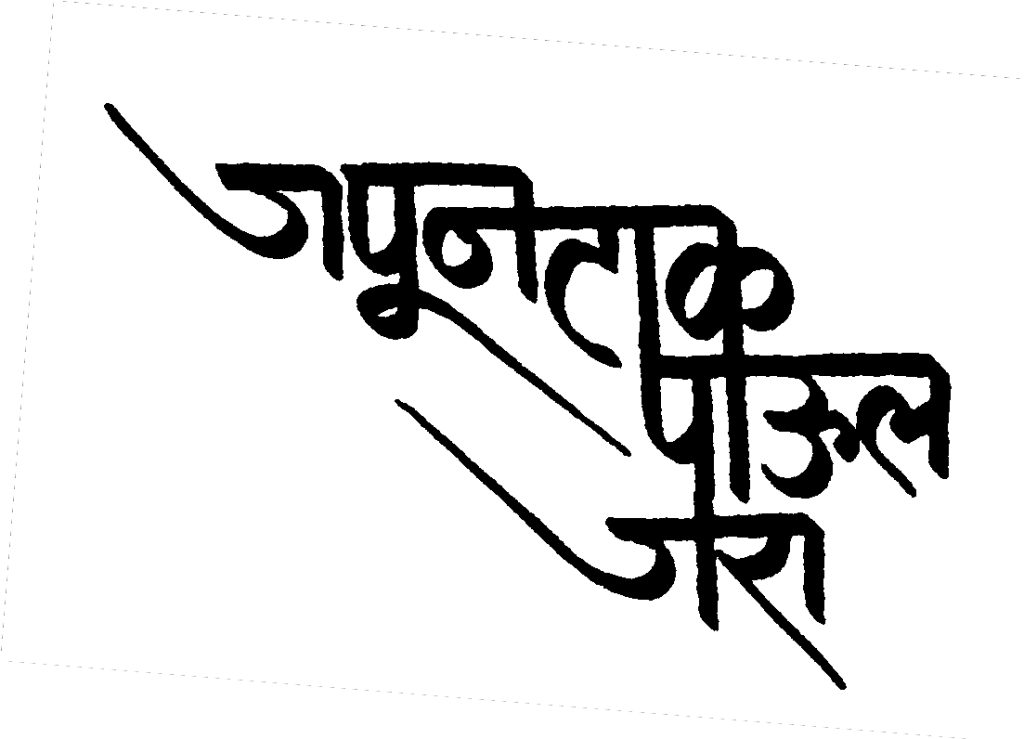 जपून टाक
पाऊल
जरा